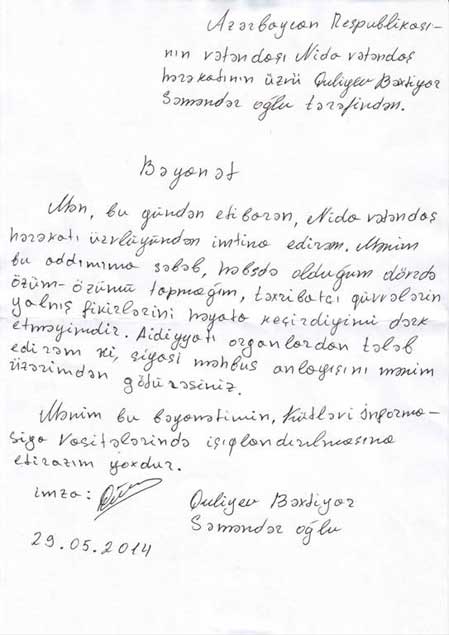 Azərbaycan Respublikası-
nın vətəndaşı Nida vətəndaş
hərəkatının üzvü Quliyev Bəxtiyar
Səməndər oğlu tərəfindən.
Bəyanat
Mən, bu gündən etibarən, Nida vətəndaş
hərəkatı üzvlüyündən imtina edirəm. Mənim
bu addımıma səbəb, həbsdə olduğum dövrdə
özüm-özümü tapmağım, təxribatçı qüvvələrin
yalnış fikirlərini həyata keçirdiyimi dərk
etməyimdir. Aidiyyatı orqanlardan tələb
edirəm ki, siyasi məhbus anlayışını mənim
üzərimdən götürəsiniz.
Mənim bu bəyanatimin, Kütləvi İnforma-
siya Vasitələrində işıqlandırılmasına
etirazım yoxdur.
imza:
Quliyev Bəxtiyar
Səməndər oğlu
29.05.2014